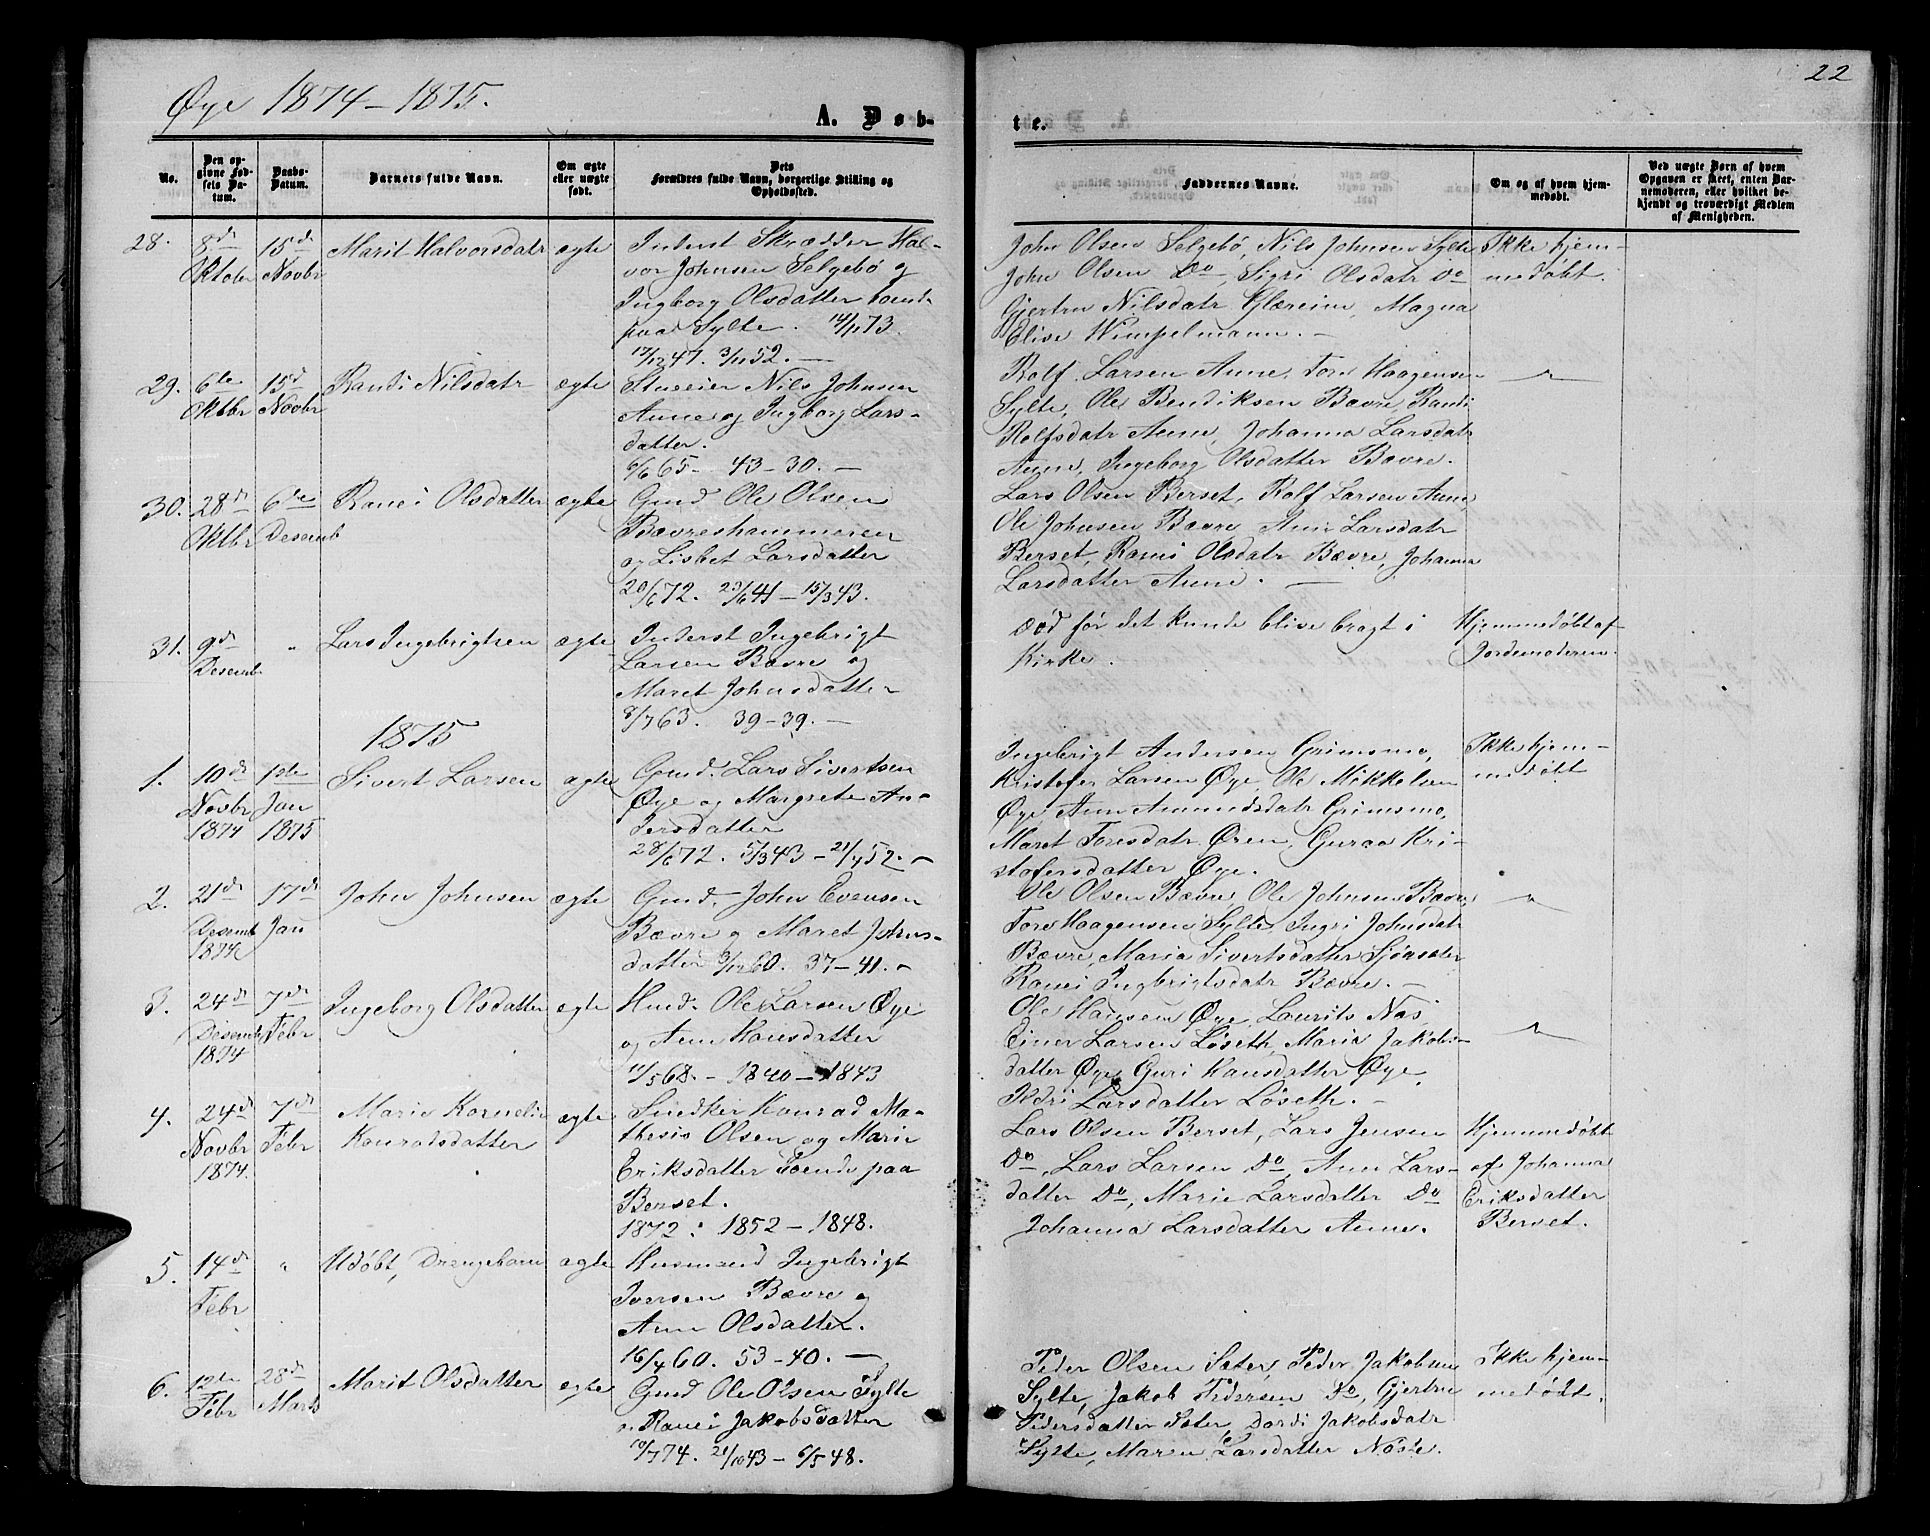 Øye 1874-1875.
22
A. Døb-
te.
No.
Den op-
givne Fød-
sels Da-
tum.
Daabs-
Datum.
Barnets fulde Navn.
Om ægte
eller uægte
født.
Dets
Forældres fulde Navn, borgerlige Stilling og
Opholdssted.
Faddernes Navne.
Om og af hvem hjem-
medøbt.
Ved uægte Børn af hvem
Opgaven er skeet, enten Bar-
nemoderen, eller hvilket be-
kjendt og troværdigt Medlem
af Menigheden.
28.
8de
Oktobr
15de
Novbr
Marit Halvorsdatr
ægte
Inderst Skrædder Hal-
vor Johnsen Selgebö og
Ingborg Olsdatter boend.
paa Sylte. 14/11 73.
17/12 47. 3/11 52. —
John Olsen Selgebö, Nils Johnsen Sylte
John Olsen Do, Sigri Olsdatr Do
Gjertru Nilsdatr Glæreim, Magna
Elise Wimpelmann. —
Ikke hjem-
medöbt.
29.
6te
Oktbr
15d
Novbr
Randi Nilsdatr
ægte
Stueeier Nils Johnsen
Aune og Ingborg Lars-
datter.
6/6 65 - 43 - 30. —
Rolf Larsen Aune, Tore Haagensen
Sylte, Ole Bendiksen Bævre, Randi
Rolfsdatr Aune, Johanna Larsdatr
Aune, Ingeborg Olsdatter Bævre.
— " —
30.
28de
Oktbr
6de
Desemb
Ranei Olsdatter
ægte
Gmd. Ole Olsen
Bævreshammeren
og Lisbet Larsdatter
20/6 72. 23/6 41 - 15/3 43.
Lars Olsen Berset, Rolf Larsen Aune
Ole Johnsen Bævre, Ane Larsdatr
Berset, Ranei Olsdatr Bævre, Johanna
Larsdatter Aune. —
31.
9de
Desemb
"
Lars Ingebrigtsen
ægte
Inderst Ingebrigt
Larsen Bævre og
Maret Johnsdatter
8/7 63. 39 - 39. —
død før det kunde blive bragt i
Kirke.
Hjemmedöbt af
Jordemoderen.
1875
1.
10de
Novbr
1874
1ste
Jan
1875
Sivert Larsen
ægte
Gmd. Lars Sivertsen
Øye og Margrete An-
dersdatter
28/6 72. 5/3 43 - 21/4 52. —
Ingebrigt Andersen Grimsmo,
Kristofer Larsen Øye, Ole Mikkelsen
Øye, Ane Amundsdatr Grimsmo,
Maret Toresdatr Ören, Guraa Kri-
stofersdatter Øye.
Ikke hjem-
medöbt
2.
21de
Desemb
1874
17de
Jan
John Johnsen
ægte
Gmd. John Evensen
Bævre og Maret Johns-
datter 3/12 60. 37 - 41. —
Ole Olsen Bævre, Ole Johnsen Bævre,
Tore Haagensen Sylte, Ingri Johnsdatr
Bævre, Maria Sivertsdatter Sjönsæter
Ranei Ingbrigtsdatr Bævre. —
— " —
3.
24de
Desemb
1874
7de
Febr
Ingeborg Olsdatter
ægte
Hmd. Ole Larsen Øye
og Ane Hansdatter
11/5 68. - 1840 - 1843
Ole Hansen Øye, Laurits Näs
Einer Larsen Löseth, Marie Jakobs-
datter Øye, Guri Hansdatter Øye,
Larsdatter Löseth. —
— " —
4.
24de
Novbr
1874.
7de
Febr
Marie Kornelie
Konradsdatter
ægte
Snedker Konrad Ma-
thesis Olsen og Marie
Eriksdatter boende paa
Berset.
1872 : 1852 - 1848.
Lars Olsen Berset, Lars Jensen
Do, Lars Larsen Do, Ane Lars-
datter Do, Marie Larsdatter Do
Johanna Larsdatter Aune.
Hjemmedöbt
af Johanna
Eriksdatter
Berset.
5.
14de
Febr
"
Udöbt, Drengebarn
ægte
Husmand Ingebrigt
Iversen Bævre og
Ane Olsdatter.
16/4 60. 53 - 40. —
6.
12te
Febr
28de
Marts
Marit Olsdatter
ægte
Gmd Ole Olsen Sylte
og Ranei Jakobsdatter
10/7 74. 21/10 43 - 6/5 48.
Peder Olsen Sæter, Peder Jakobsen
Sylte, Jakob Pedersen Do, Gjertru
Pedersdatter Sæter, Dordi Jakobsdatr
Sylte, Maren Larsdatter Nöste.
Ikke hjem-
medöbt.